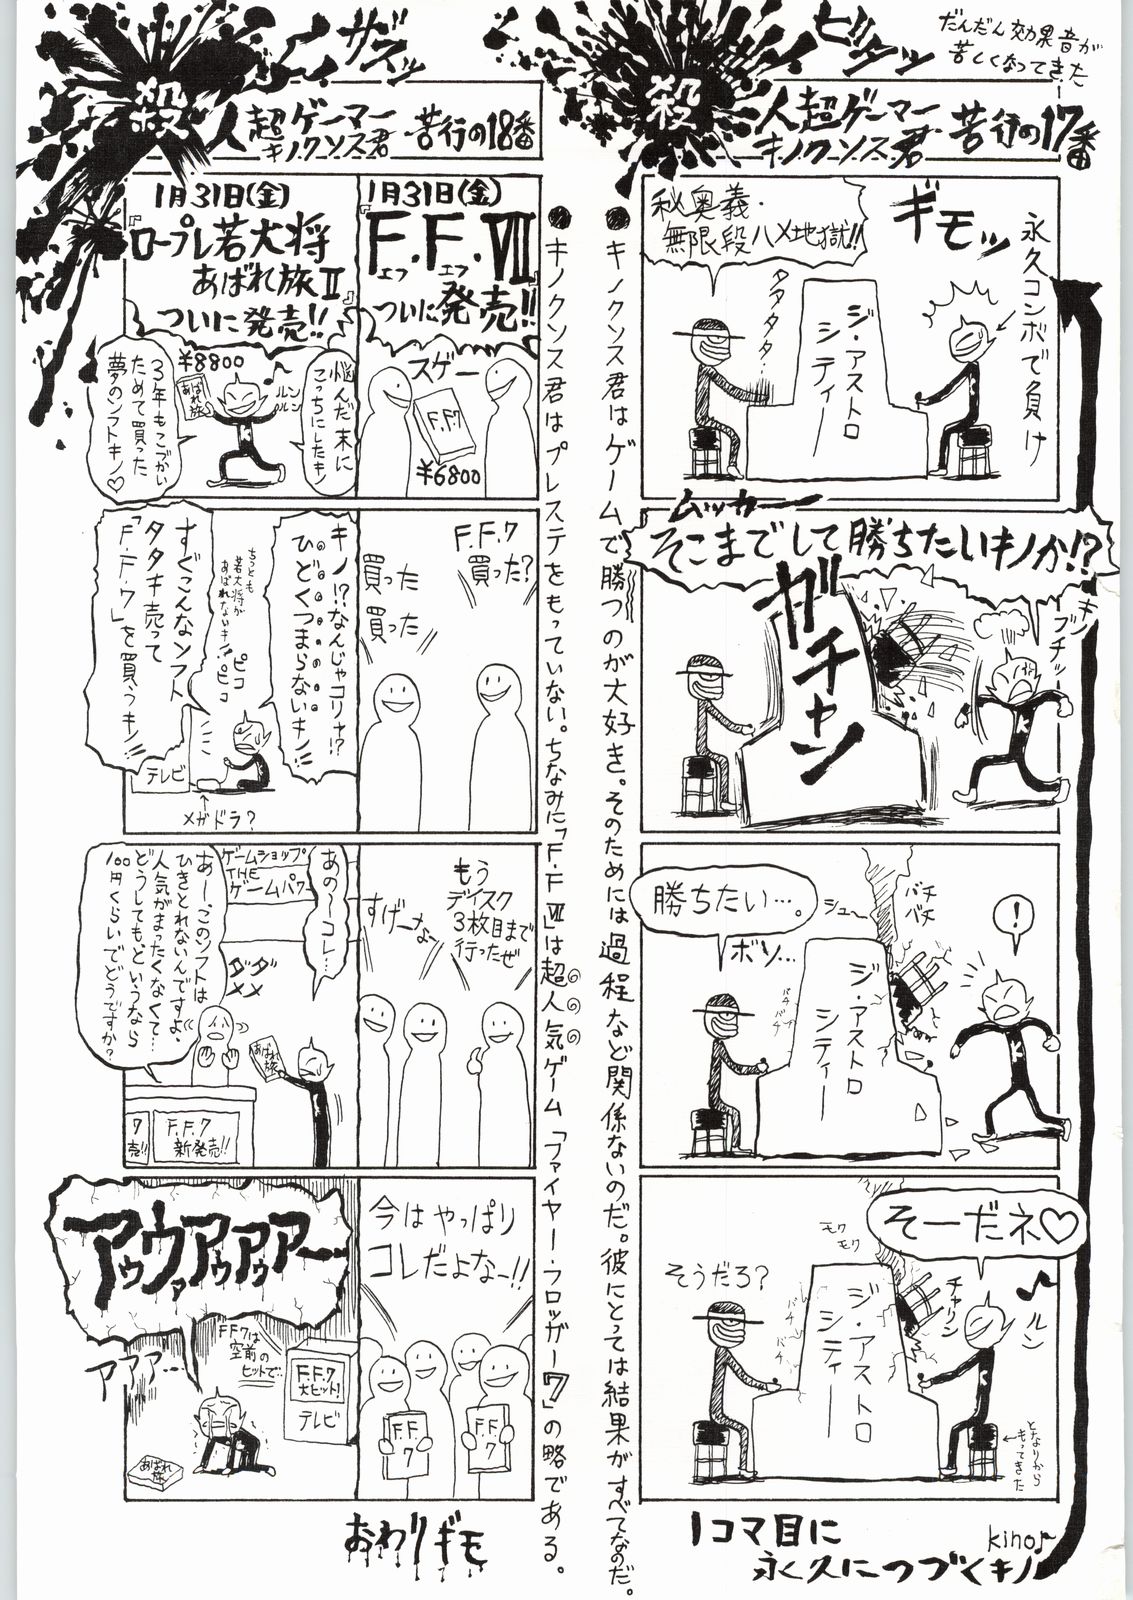 だんだん効果音が
苦しくなってきた
ビシャッ
殺人超ゲーマー
キノクソス君
苦行の17番
秘奥義・
無限段ハメ地獄!!
ギモッ
永久コンボで負け
タタタタ…
ジ・アストロ
シティー
ムッカー
そこまでして勝ちたいキノか!?
キノ
ブチッ
ガチャン
勝ちたい…。
ボソ…
シュ〜
バチ
バチ
バチ
バチ
!
ジ・アストロ
シティー
そーだネ♡
そうだろ?
モワ
モワ
バチ
バチ
チャリン
ルン
ジ・アストロ
シティー
となりから
もってきた
1コマ目に
永久につづくキノ
kino
●キノクソス君はゲームで勝つのが大好き。そのためには過程など関係ないのだ。彼にとっては結果がすべてなのだ。
ザズッ
殺人超ゲーマー
キノクソス君
苦行の18番
1月31日(金)
F.F.VII
エフ エフ
ついに発売!!
スゲー
F.F.7
¥6800
1月31日(金)
『ロープレ若大将
あばれ旅II』
ついに発売!!
悩んだ末に
こっちにしたキノ
ルン
ルン
¥8800
あばれ旅
3年もこづかい
ためて買った
夢のソフトキノ♡
F.F.7
買った?
買った
買った
キノ!?なんじゃコリャ!?
ひどくつまらないキノ!!
ちっとも
若大将が
あばれないキ!!
ピコ
ピコ
すぐこんなソフト
タタキ売って
「F.F.7」を買うキノ!!
テレビ
メガドラ?
もう
ディスク
3枚目まで
行ったぜ
すげーなー
あの〜コレ…
ゲームショップ
THE
ゲームパワー
ダメ
ダメ
あー、このソフトは
ひきとれないんですよ、
人気がまったくなくて…
どうしても、というなら
100円くらいでどうですか?
あばれ旅
7
売!!
F.F.7
新発売!!
今はやっぱり
コレだよなー!!
F.F.
7
F.F.
7
アゥウァアゥアゥアー
アアア…
FF7は
空前の
ヒットで…
F.F.7
大ヒット!
テレビ
あばれ
旅
おわりギモ
●キノクソス君はプレステをもっていない。ちなみに「F.F.VII」は超人気ゲーム「ファイヤー・フロッガー7」の略である。